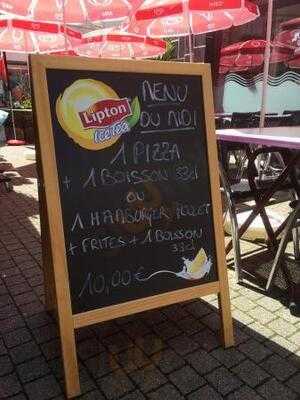 Lipton
Lipton
ICE TEA
MENU
DU MIDI
1 PIZZA
+ 1 BOISSON 33cl
OU
1 HAMBURGER POULET
+ FRITES + 1 BOISSON
33cl
10,00 €